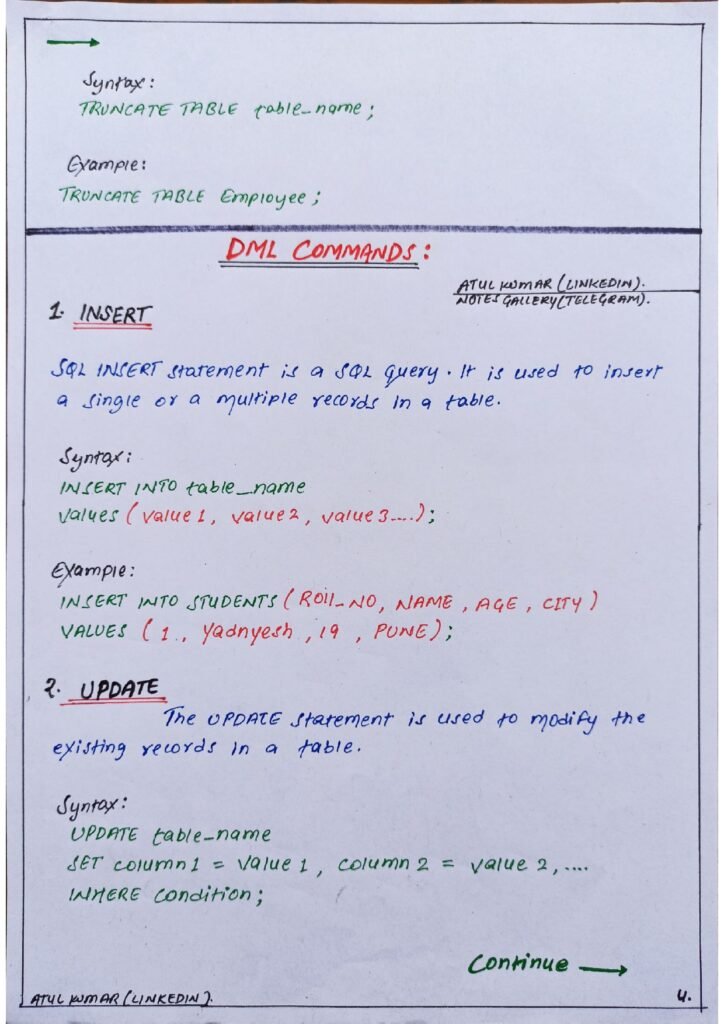 Syntax:
TRUNCATE TABLE table_name;
Example:
TRUNCATE TABLE Employee;
DML COMMANDS:
ATUL KUMAR (LINKEDIN).
NOTES GALLERY(TELEGRAM).
1. INSERT
SQL INSERT statement is a SQL query. It is used to insert
a single or a multiple records in a table.
Syntax:
INSERT INTO table_name
values (value 1, value 2, value 3....);
Example:
INSERT INTO STUDENTS (ROll_NO, NAME, AGE, CITY)
VALUES (1, Yadnyesh, 19, PUNE);
2. UPDATE
The UPDATE statement is used to modify the
existing records in a table.
Syntax:
UPDATE table_name
SET column 1 = value 1, column 2 = value 2,....
WHERE condition;
Continue →
ATUL KUMAR (LINKEDIN).
4.